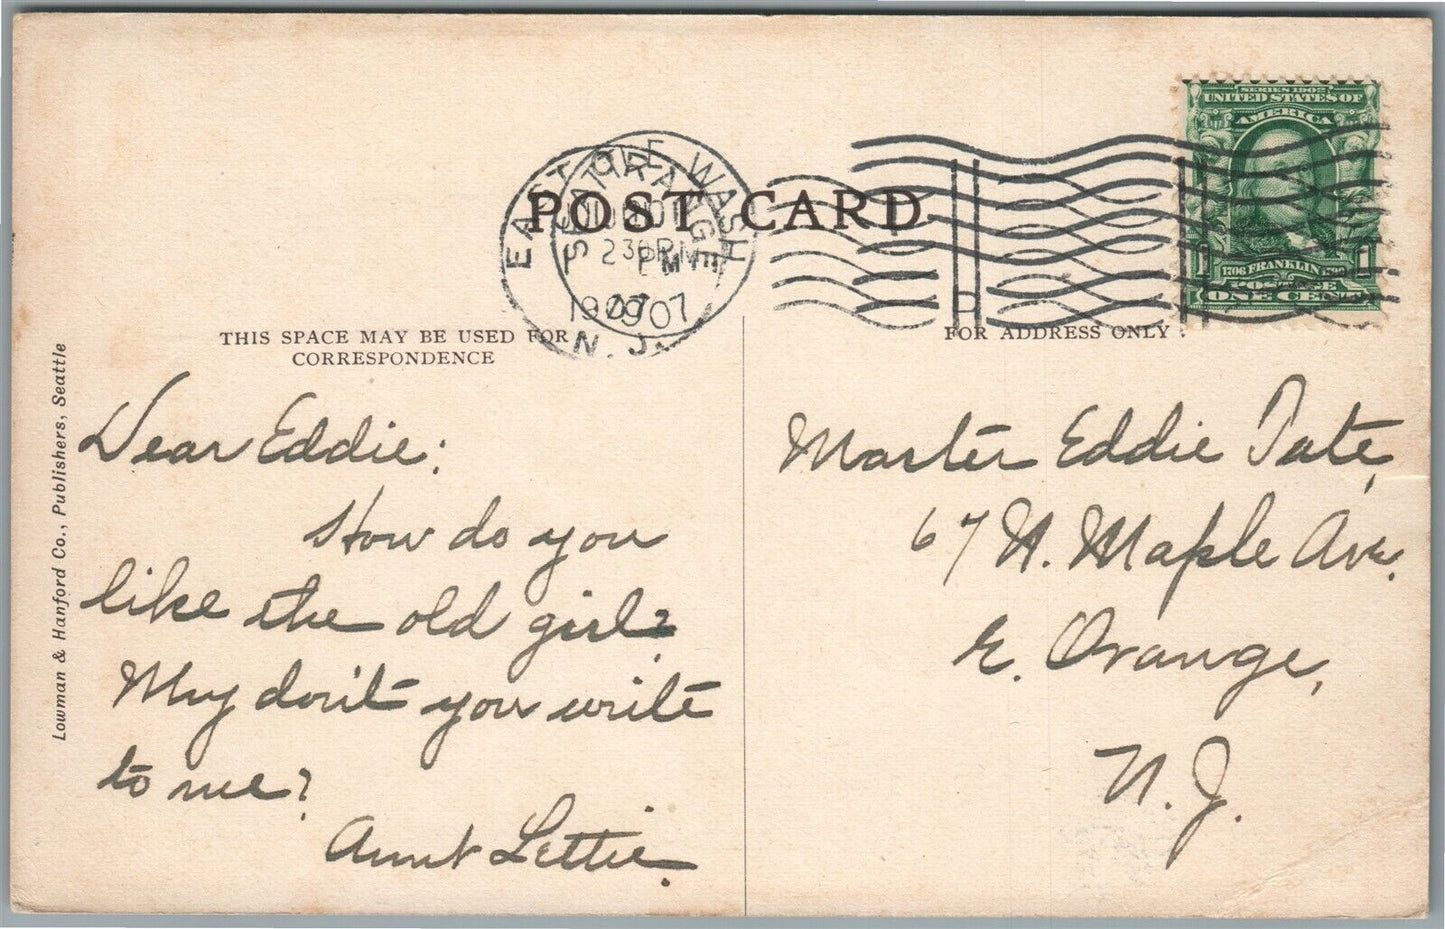 SERIES 1902
UNITED STATES OF
AMERICA
1706 FRANKLIN 1790
POSTAGE
1 1
ONE CENT
SEATTLE WASH
EAST ORANGE
N.J.
1907
1907
POST CARD
THIS SPACE MAY BE USED FOR
CORRESPONDENCE
FOR ADDRESS ONLY
Lowman & Hanford Co., Publishers, Seattle
Dear Eddie:
How do you
like the old girl?
Why don't you write
to me?
Aunt Lettie.
Master Eddie Tate,
67 N. Maple Ave.
E. Orange,
N.J.